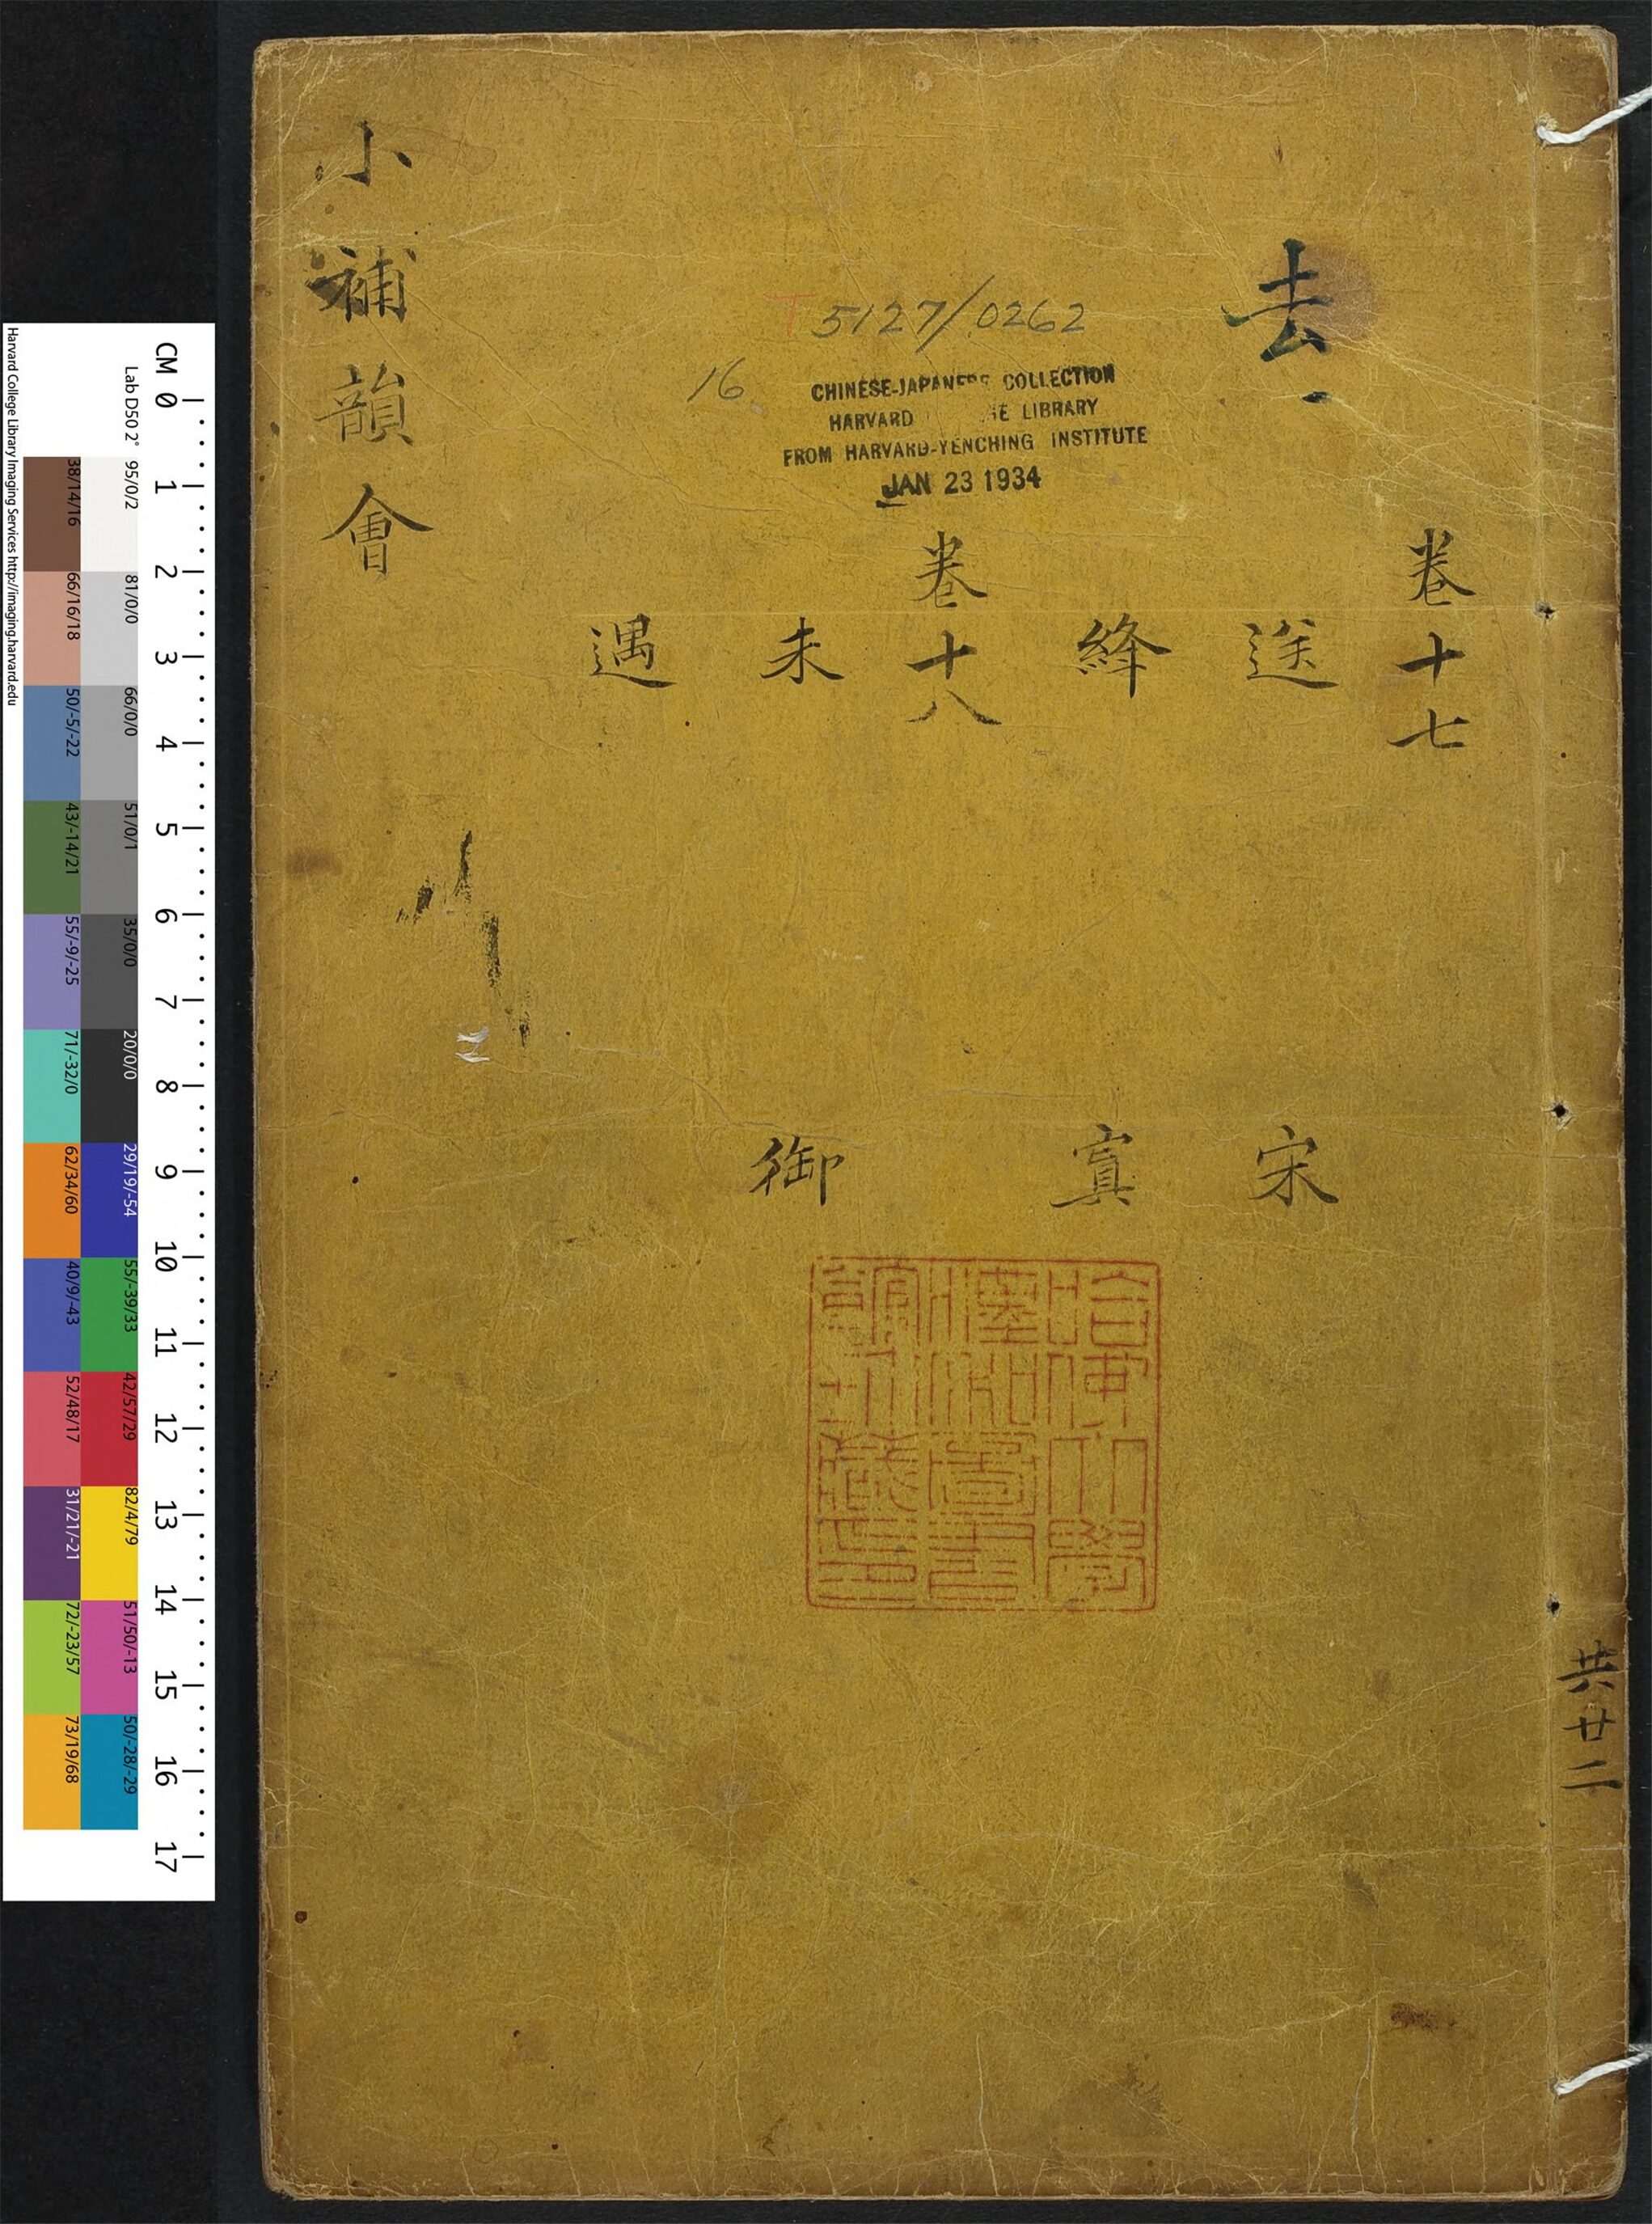 去一
卷十七
送 宋
絳 寘
卷十八
未 御
遇
小補韻會
共廿二
T 5127/0262
16
CHINESE-JAPANESE COLLECTION
HARVARD LIBRARY
FROM HARVARD-YENCHING INSTITUTE
JAN 23 1934
哈佛大學
漢和圖書
館珍藏印
CM 0 1 2 3 4 5 6 7 8 9 10 11 12 13 14 15 16 17
Lab D50 2° 95/0/2 81/0/0 66/0/0 51/0/1 35/0/0 20/0/0 29/19/-54 55/-39/33 42/57/29 82/4/79 51/50/-13 50/-28/-29
38/14/16 66/16/18 50/-5/-22 43/-14/21 55/-9/-25 71/-32/0 62/34/60 40/9/-43 52/48/17 31/21/-21 72/-23/57 73/19/68
Harvard College Library Imaging Services http://imaging.harvard.edu